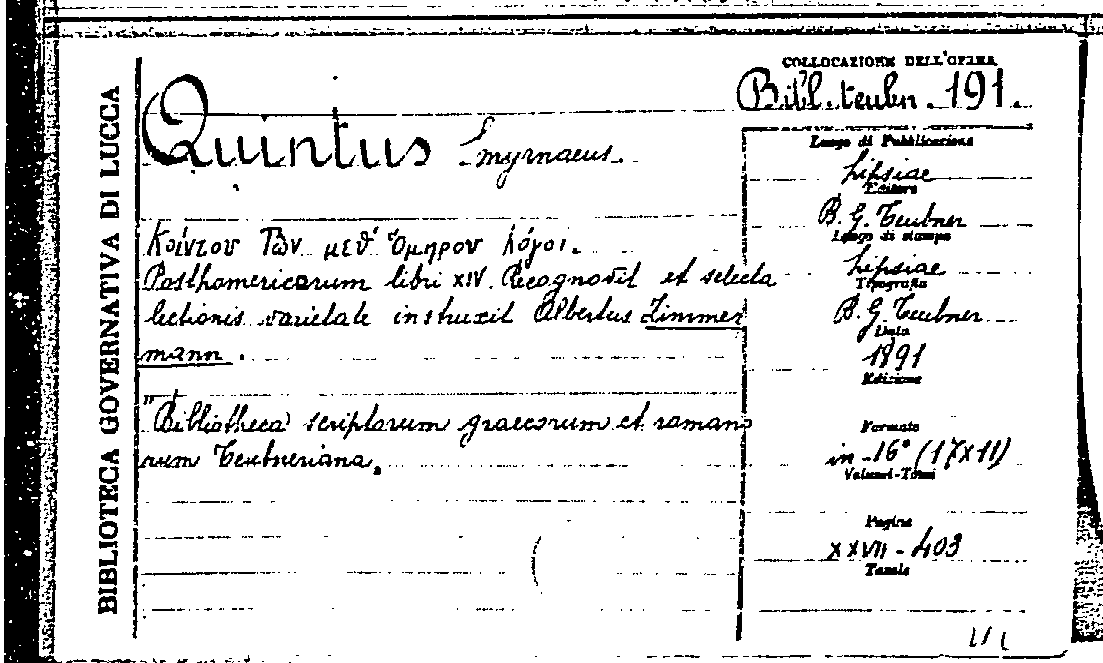 BIBLIOTECA GOVERNATIVA DI LUCCA
Quintus Smyrnaeus.
Κοίντου Τῶν μεθ' Ὅμηρον λόγοι.
Posthomericorum libri XIV. Recognovit et selecta
lectionis varietate instruxit Albertus Zimmer
mann.
"Bibliotheca scriptorum graecorum et romano
rum Teubneriana.
COLLOCAZIONE DELL'OPERA
Bibl. teubn. 191.
Luogo di Pubblicazione
Lipsiae
Editore
B. G. Teubner
Luogo di stampa
Lipsiae
Tipografia
B. G. Teubner
Data
1891
Edizione
Formato
in-16° (17x11)
Volumi-Tomi
Pagine
XXVII - 403
Tavole